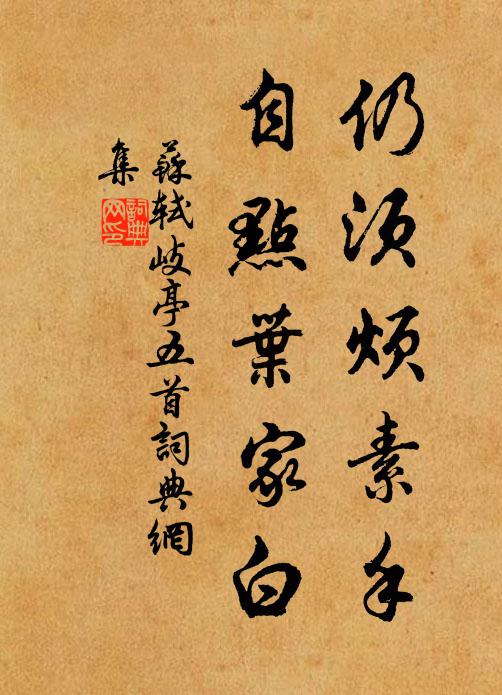 仍須煩素手
自點葉家白
蘇軾歧亭五首詞典網
集
詞典
网印